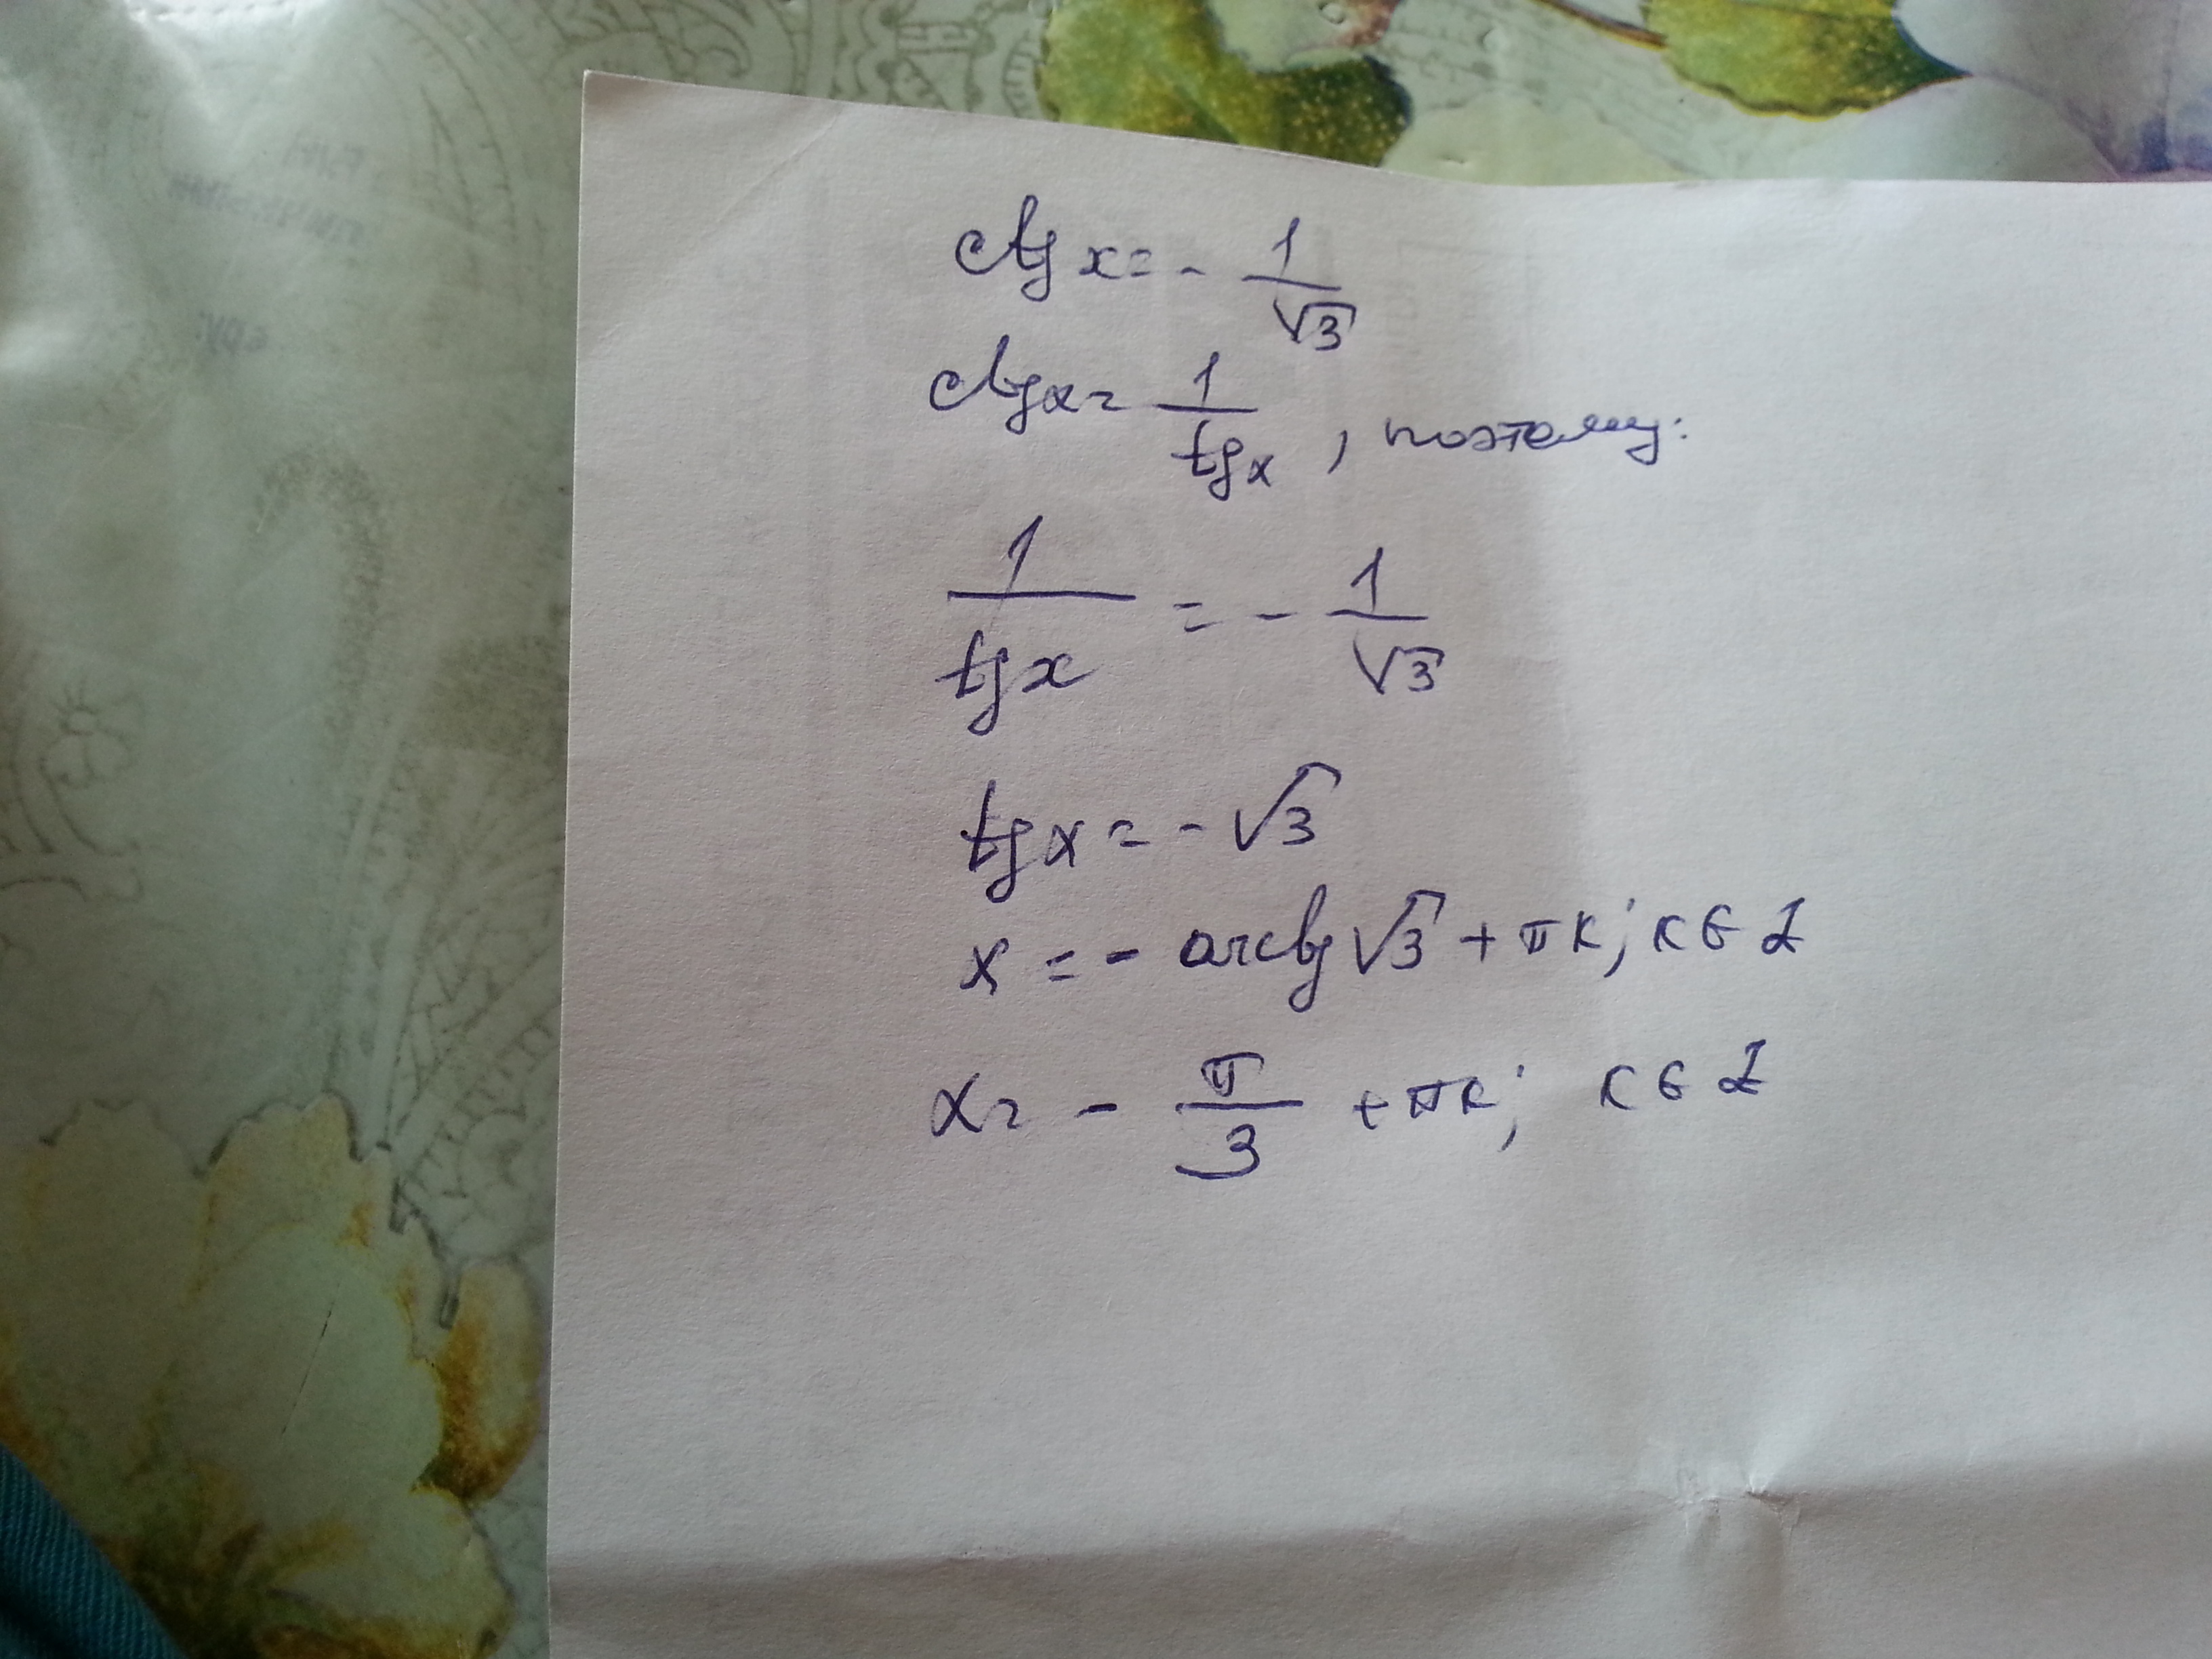 ctg x = - 1/√3
ctg x = 1/tg x, поэтому:
1/tg x = - 1/√3
tg x = - √3
x = - arctg √3 + πк; к ∈ Z
x = - π/3 + πк; к ∈ Z